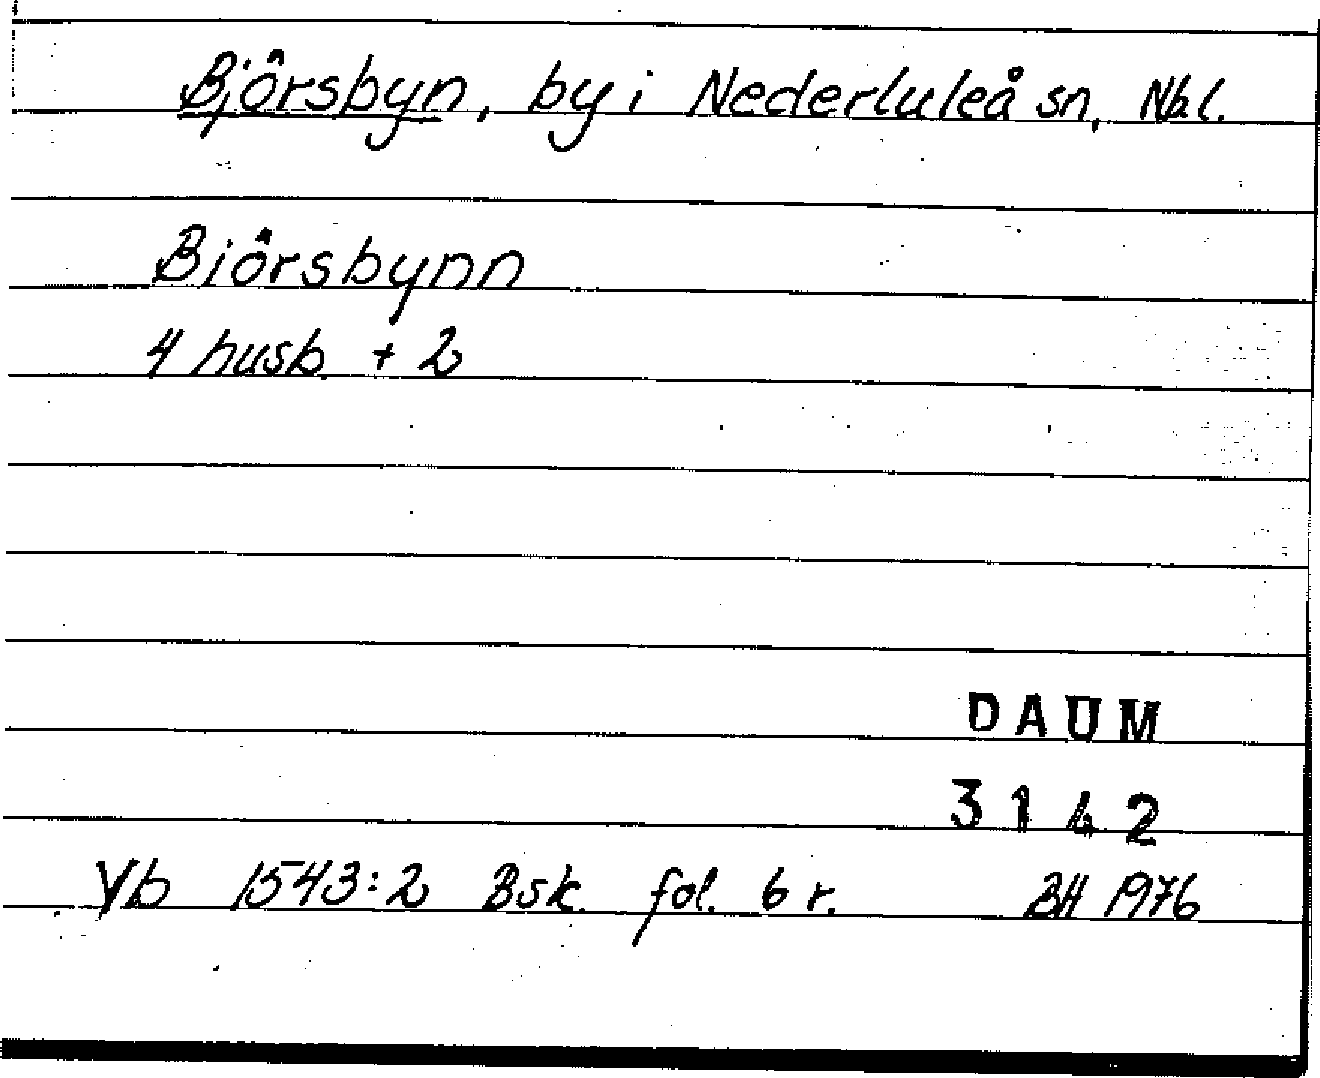 Björsbyn, by i Nederluleå sn, Nbl.
Biörsbynn
4 husb. + 2
DAUM
3142
Vb 1543:2 Bsk. fol. 6 r. BH 1976